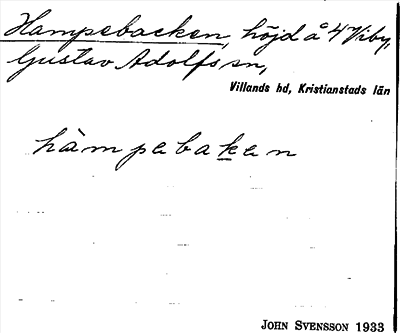 Hampebacken, höjd å 4 Viby,
Gustav Adolfs sn,
Villands hd, Kristianstads län
hàmpebaken
JOHN SVENSSON 1933